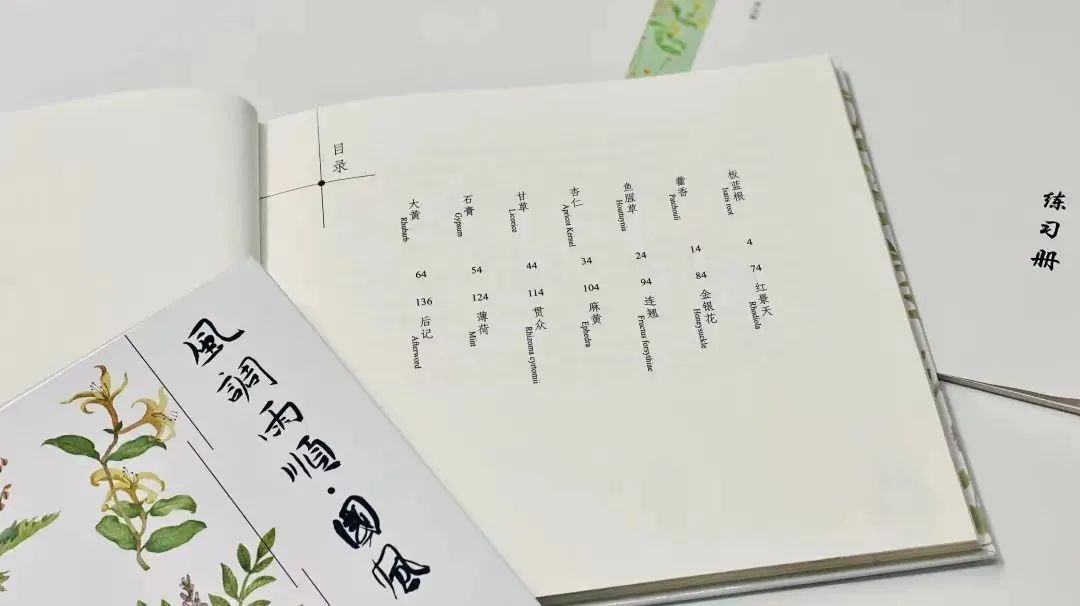 目录
板蓝根
Isatis root
4
藿香
Patchouli
14
鱼腥草
Houttuynia
24
杏仁
Apricot Kernel
34
甘草
Licorice
44
石膏
Gypsum
54
大黄
Rhubarb
64
74
红景天
Rhodiola
84
金银花
Honeysuckle
94
连翘
Fructus forsythiae
104
麻黄
Ephedra
114
贯众
Rhizoma cyrtomii
124
薄荷
Mint
136
后记
Afterword
風調雨順·國風
练习册